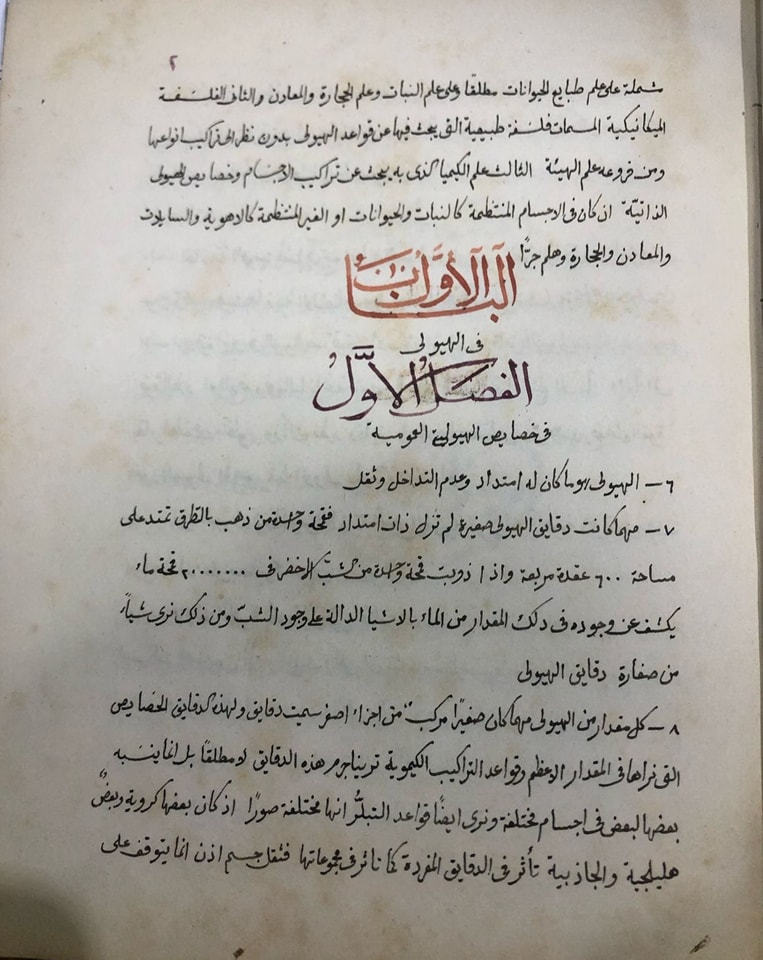 ٢
شملة على علم طبايع الحيوانات مطلقا وعلى علم النبات وعلم الحجارة والمعادن والثانى الفلسفة
الميكانيكية المسمات فلسفة طبيعية التى يبحث فيها عن قواعد الهيولى بدون نظر الى تراكيب انواعها
ومن فروعه علم الهيئة الثالث علم الكيميا الذى به يبحث عن تراكيب الاجسام وخصايص الهيولى
الذاتية ان كان فى الاجسام المنتظمة كالنبات والحيوانات او الغير المنتظمة كالاهوية والسايلات
والمعادن والحجارة وهلم جرًّا
الباب الأوَّل
فى الهيولى
الفصل الاوَّلُ
فى خصايص الهيولية العمومية
٦ – الهيولى هو ما كان له امتداد وعدم التداخل وثقل
٧ – مهما كانت دقايق الهيولى صغيرة لم تزل ذات امتداد فقمحة واحدة من ذهب بالتطرق تمتد على
مساحة ٦٠٠ عقدة مربعة واذا ذوبت قمحة واحدة من الشب الاخضر فى ٢٠٠٠٠٠٠٠ قمحة ماء
يكشف عن وجوده فى ذلك المقدار من الماء بالاشيا الدالة على وجود الشبّ ومن ذلك نرى شياءً
من صغارة دقايق الهيولى
٨ – كل مقدار من الهيولى مهما كان صغيرًا مركبٌ من اجزاء اصغر سميت دقايق ولهذه الدقايق الخصايص
التى نراها فى المقدار الاعظم وقواعد التراكيب الكيموية ترينا جرم هذه الدقايق لا مطلقًا بل انما ينسبه
بعضها لبعض فى اجسام مختلفة ونرى ايضًا قواعد التبلُّر انها مختلفة صورًا اذ كان بعضها كروية وبعضٌ
هليلجية والجاذبية تأثر فى الدقايق المفردة كما تاثر فى مجموعاتها فثقل جسم اذن انما يتوقف على